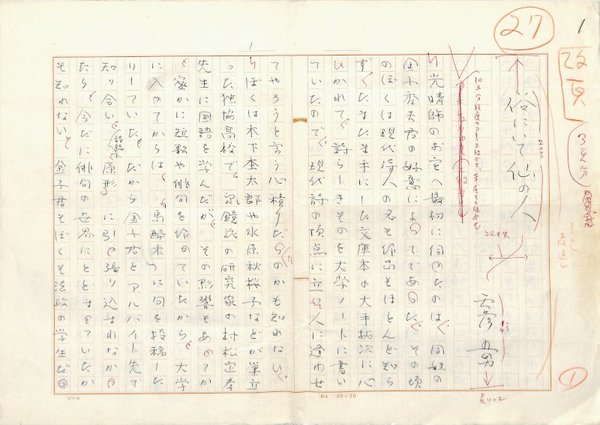 27
1
改頁
俗にいて仙の人
光晴師のお宅へ最初に伺ったのは、同姓の
金子秀夫君の好意によってであった。その頃
のぼくは現代詩人の名も作品もほとんど知ら
ず、たまたま手にした文庫本の大手拓次に心
ひかれて、詩らしきものを大学ノートに書い
ていたので、現代詩の頂点に立つ人に逢わせ
てやろうと言う心積りだったのかも知れない。
ぼくは木下杢太郎や水原秋桜子などが巣立
った独協高校で、泉鏡花の研究家の村松定孝
先生に国語を学んだが、その影響もあってか
密かに短歌や俳句を作っていたから、大学
に入ってからは「馬酔木」に句を投稿した
りしていた。だから金子君とアルバイト先で
知り合い「原形」に引っ張り込まれなかっ
たら、今だに俳句の世界にとどまっていたか
も知れない。金子君もぼくも法政の学生だっ